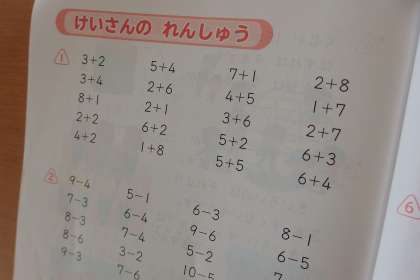 けいさんの れんしゅう
1
3+2 5+4 7+1 2+8
3+4 2+6 4+5 1+7
8+1 2+1 3+6 2+7
2+2 6+2 5+2 6+3
4+2 1+8 5+5 6+4
2
9-4 5-1 6-3 8-1
7-3 6-4 9-6 6-5
8-3 7-4 5-2
8-6 3-2 10-5
9-3 7-6
6